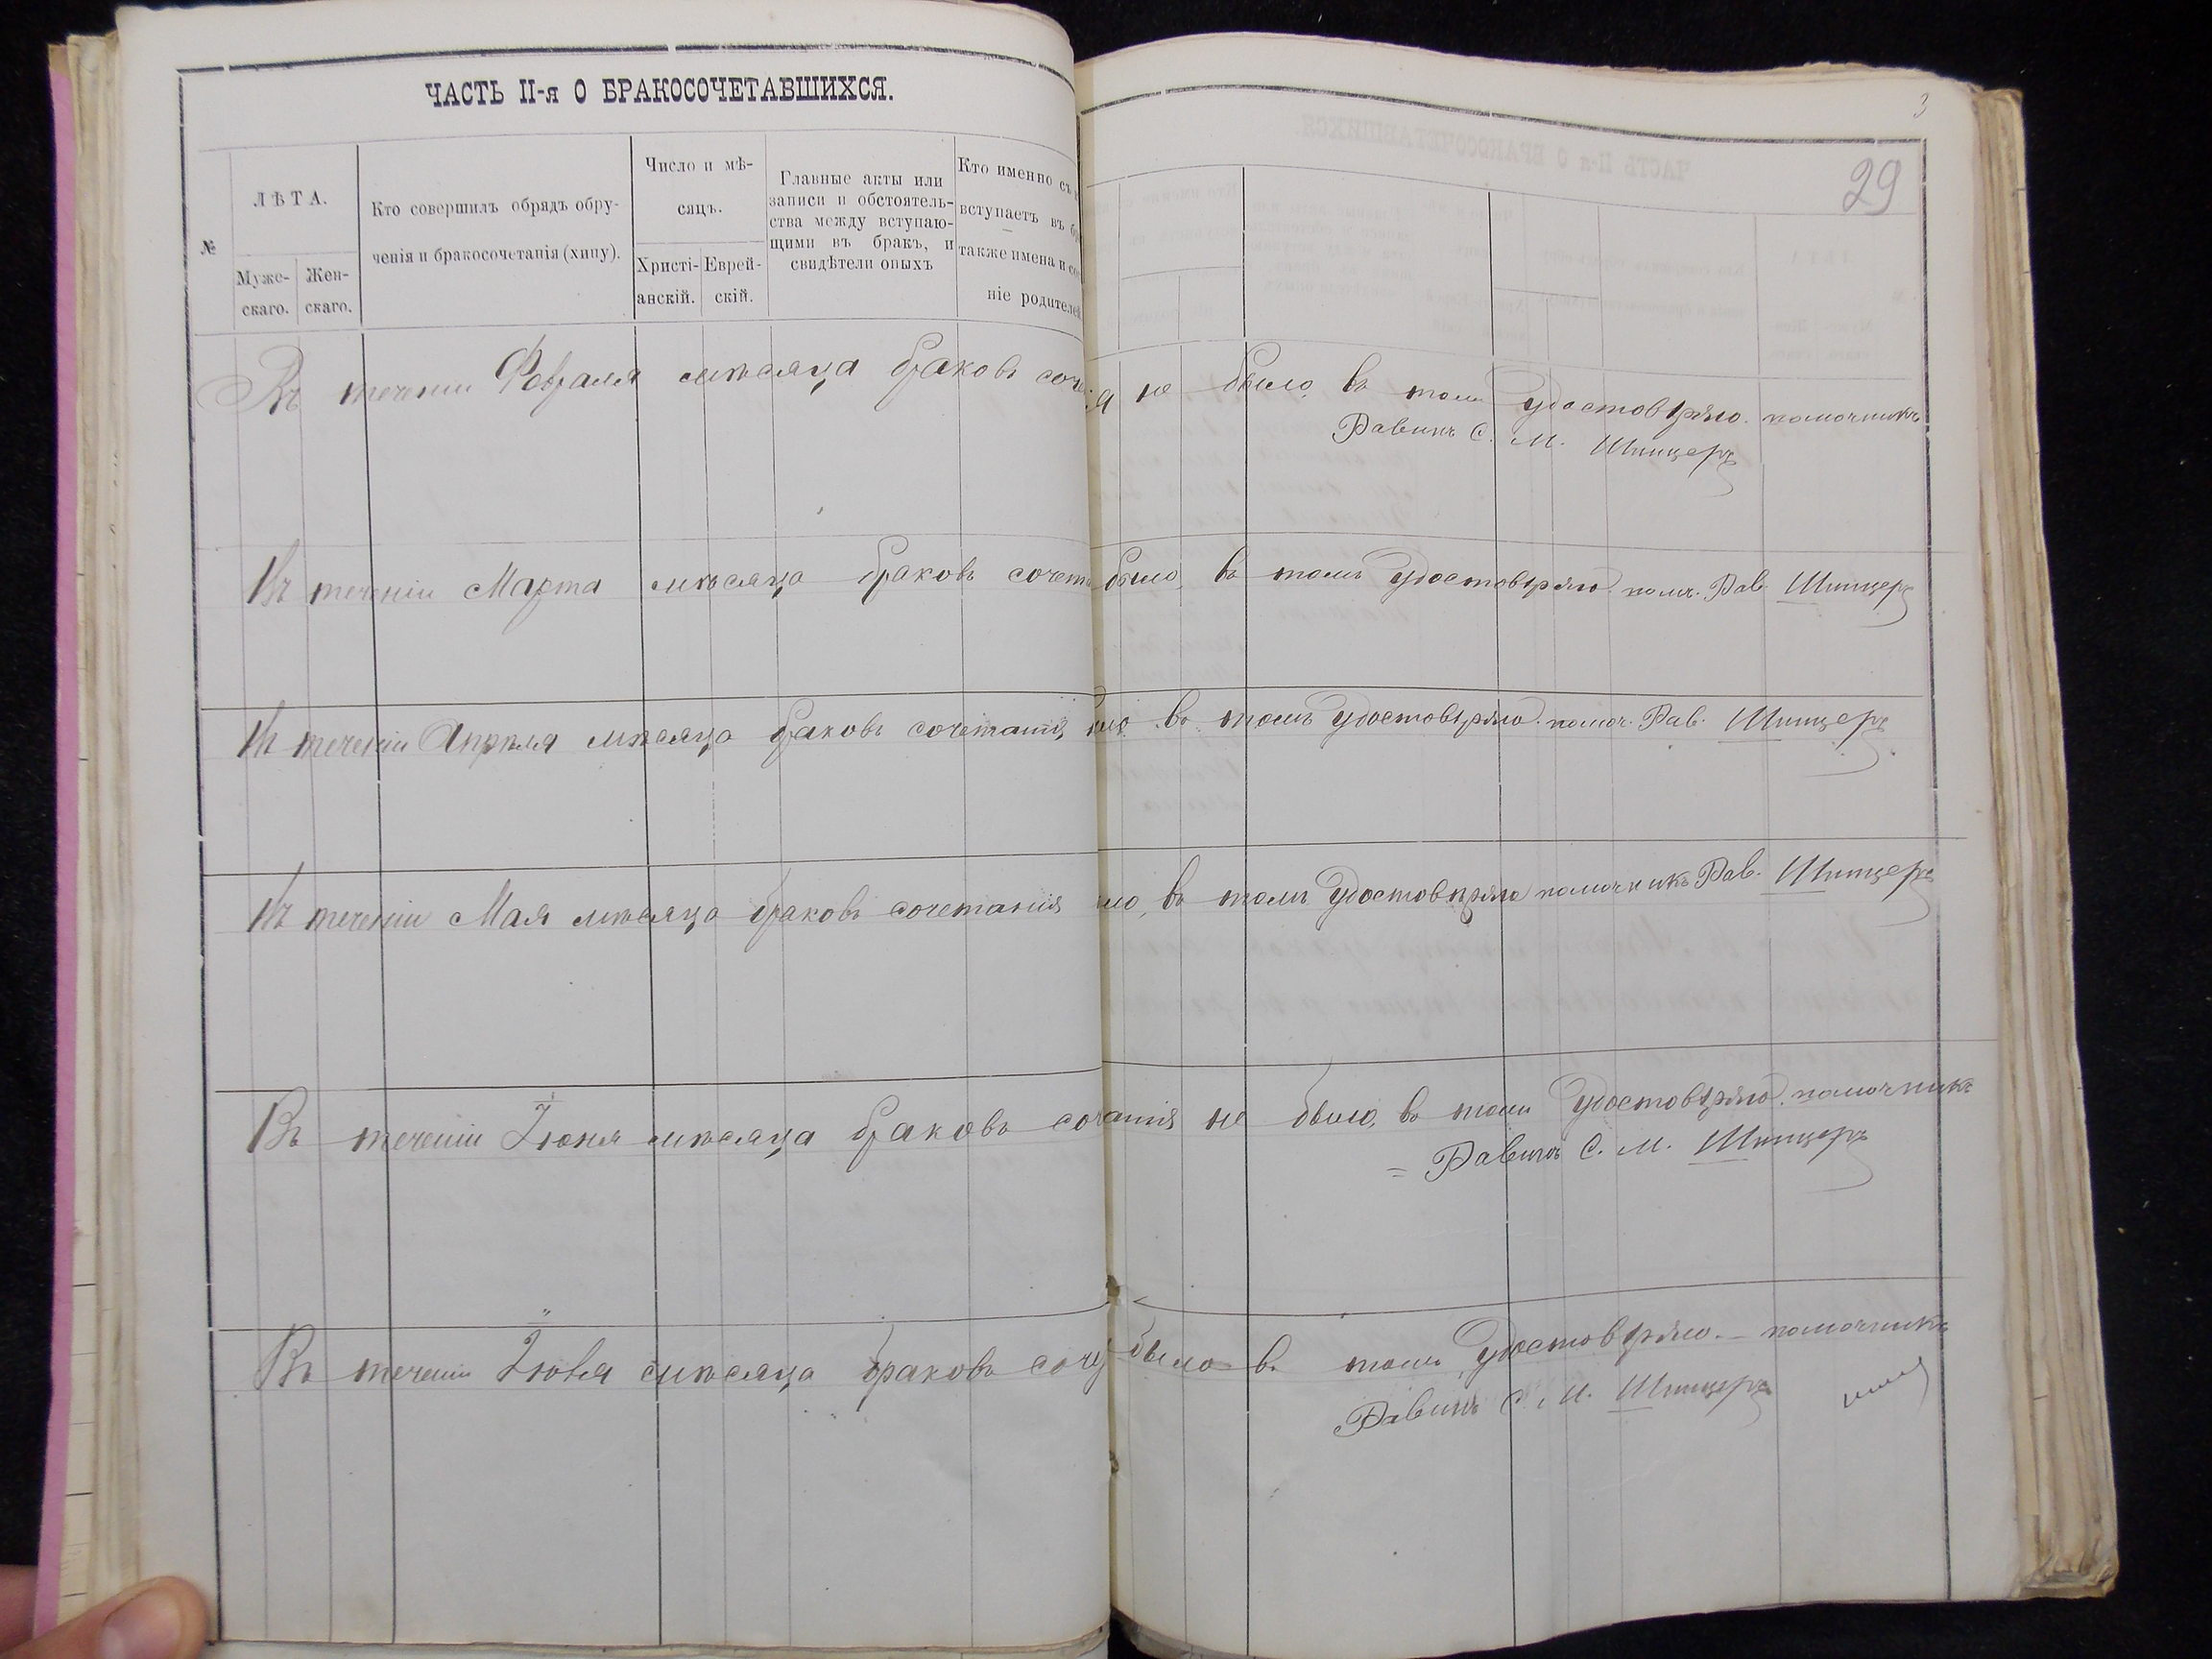 ЧАСТЬ II-я О БРАКОСОЧЕТАВШИХСЯ.
3
29
№
ЛѢТА.
Муже-
скаго.
Жен-
скаго.
Кто совершилъ обрядъ обру-
ченія и бракосочетанія (хипу).
Число и мѣ-
сяцъ.
Христі-
анскій.
Еврей-
скій.
Главные акты или
записи и обстоятель-
ства между вступаю-
щими въ бракъ, и
свидѣтели оныхъ
Кто именно съ
вступаетъ въ
также имена и
ніе родителей
Въ теченіи Февраля мѣсяца браковъ соче я не было, въ томъ удостовѣряю. помочникъ
Равинъ С. М. Шпицеръ
Въ теченіи Марта мѣсяца браковъ сочета было, въ томъ удостовѣряю помч. Рав. Шпицеръ
Въ теченіи Апрѣля мѣсяца браковъ сочетанія ыло въ томъ удостовѣряю. помоч. Рав. Шпицеръ
Въ теченіи Мая мѣсяца браковъ сочетанія ло, въ томъ удостовѣряю помочникъ Рав. Шпицеръ
Въ теченіи Іюня мѣсяца браковъ сочтанія не было, въ томъ удостовѣряю. помочникъ
= Равинъ С. М. Шпицеръ
Въ теченіи Іюля мѣсяца браковъ соче было въ томъ удостовѣряю. — помочникъ
Равинъ С. М. Шпицеръ